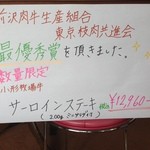 前沢肉牛生産組合
東京枝肉共進会
最優秀賞を頂きました。
数量限定
小形牧場牛
サーロインステーキ 税込¥12,960-